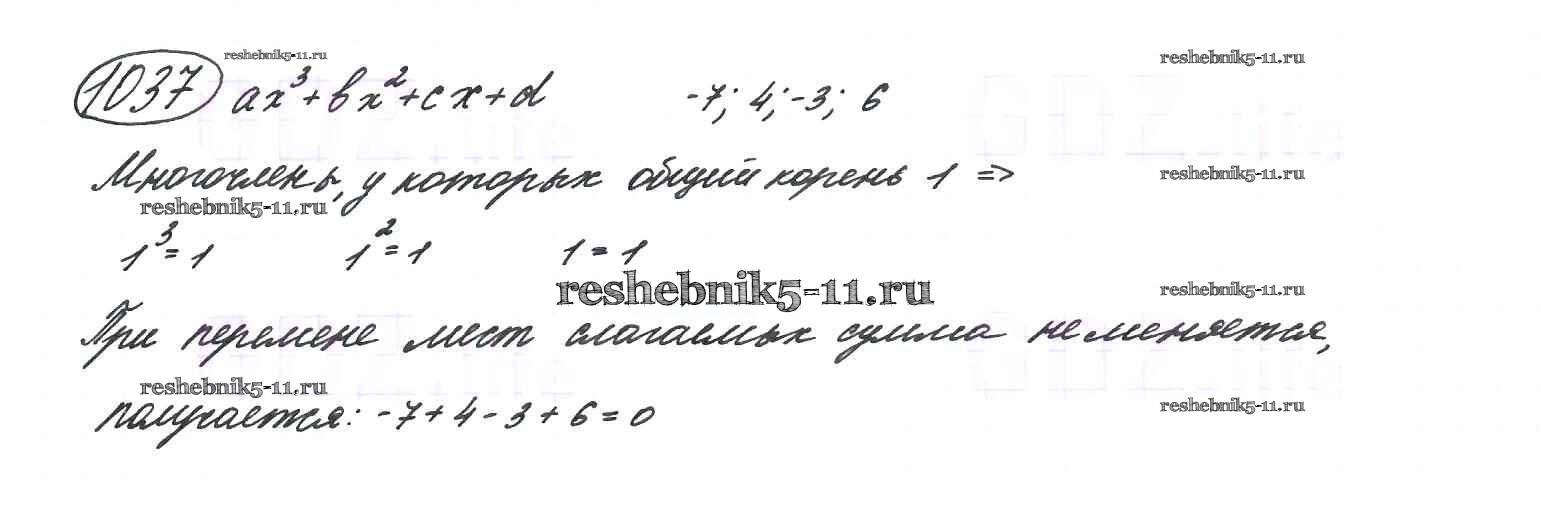 reshebnik5-11.ru
reshebnik5-11.ru
1037 ax³+bx²+cx+d -7; 4; -3; 6
Многочлены, у которых общий корень 1 =>
reshebnik5-11.ru
reshebnik5-11.ru
1³=1 1²=1 1=1
reshebnik5-11.ru
reshebnik5-11.ru
При перемене мест слагаемых сумма не меняется,
reshebnik5-11.ru
reshebnik5-11.ru
получается: -7+4-3+6=0